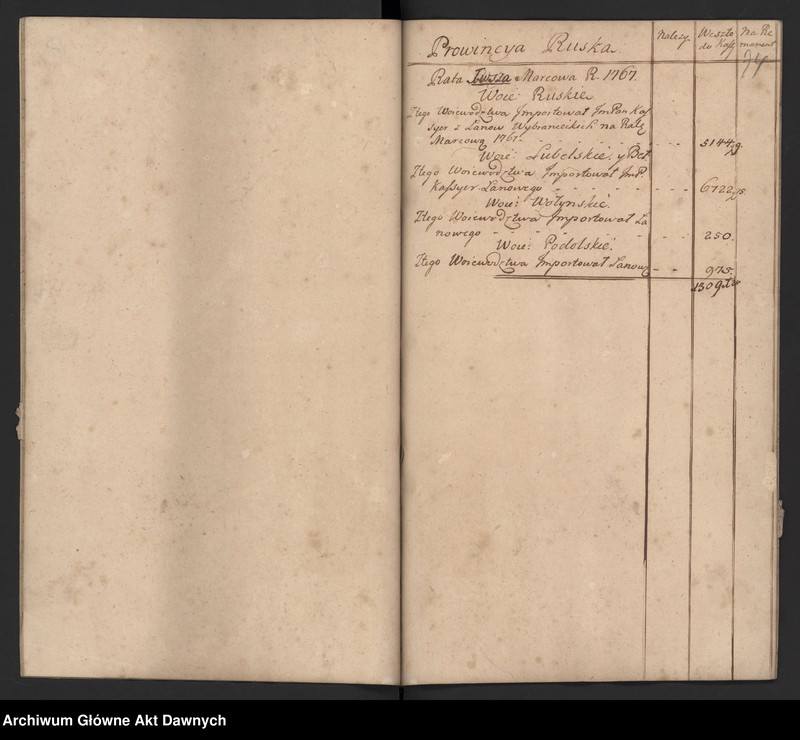 Prowincya Ruska.
Należy.
Weszło
do Kassy
Na Re
manent
Rata Iwsza Marcowa R. 1767.
Woie: Ruskie
Ztego Woiewodztwa Importował ImPan Kas
syer z Łanow Wybranieckich na Ratę
Marcową 1767. 5144
Woie: Lubelskie. y Bel
Ztego Woiewodztwa Importował ImP.
Kassyer Łanowego 6722
Woie: Wołynskie.
Ztego Woiewodztwa Importował Ła
nowego 250.
Woie: Podolskie.
Ztego Woiewodztwa Importował Łanowe 975.
Archiwum Główne Akt Dawnych